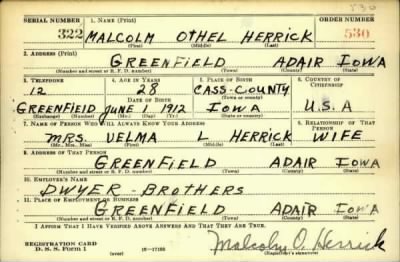 530
SERIAL NUMBER 1. NAME (Print) ORDER NUMBER
322 MALCOLM OTHEL HERRICK 530
(First) (Middle) (Last)
2. ADDRESS (Print)
GREENFIELD ADAIR IOWA
(Number and street or R. F. D. number) (Town) (County) (State)
3. TELEPHONE 4. AGE IN YEARS 5. PLACE OF BIRTH 6. COUNTRY OF CITIZENSHIP
12 28 CASS-COUNTY
DATE OF BIRTH (Town or county)
GREENFIELD JUNE 1 1912 IOWA U.S.A
(Exchange) (Number) (Mo.) (Day) (Yr.) (State or country)
7. NAME OF PERSON WHO WILL ALWAYS KNOW YOUR ADDRESS 8. RELATIONSHIP OF THAT PERSON
MRS. VELMA L HERRICK WIFE
(Mr., Mrs., Miss) (First) (Middle) (Last)
9. ADDRESS OF THAT PERSON
GREENFIELD ADAIR IOWA
(Number and street or R. F. D. number) (Town) (County) (State)
10. EMPLOYER'S NAME
DWYER-BROTHERS
11. PLACE OF EMPLOYMENT OR BUSINESS
GREENFIELD ADAIR IOWA
(Number and street or R. F. D. number) (Town) (County) (State)
I AFFIRM THAT I HAVE VERIFIED ABOVE ANSWERS AND THAT THEY ARE TRUE.
REGISTRATION CARD
D. S. S. Form 1 (over) Malcolm O. Herrick
(Registrant's signature)